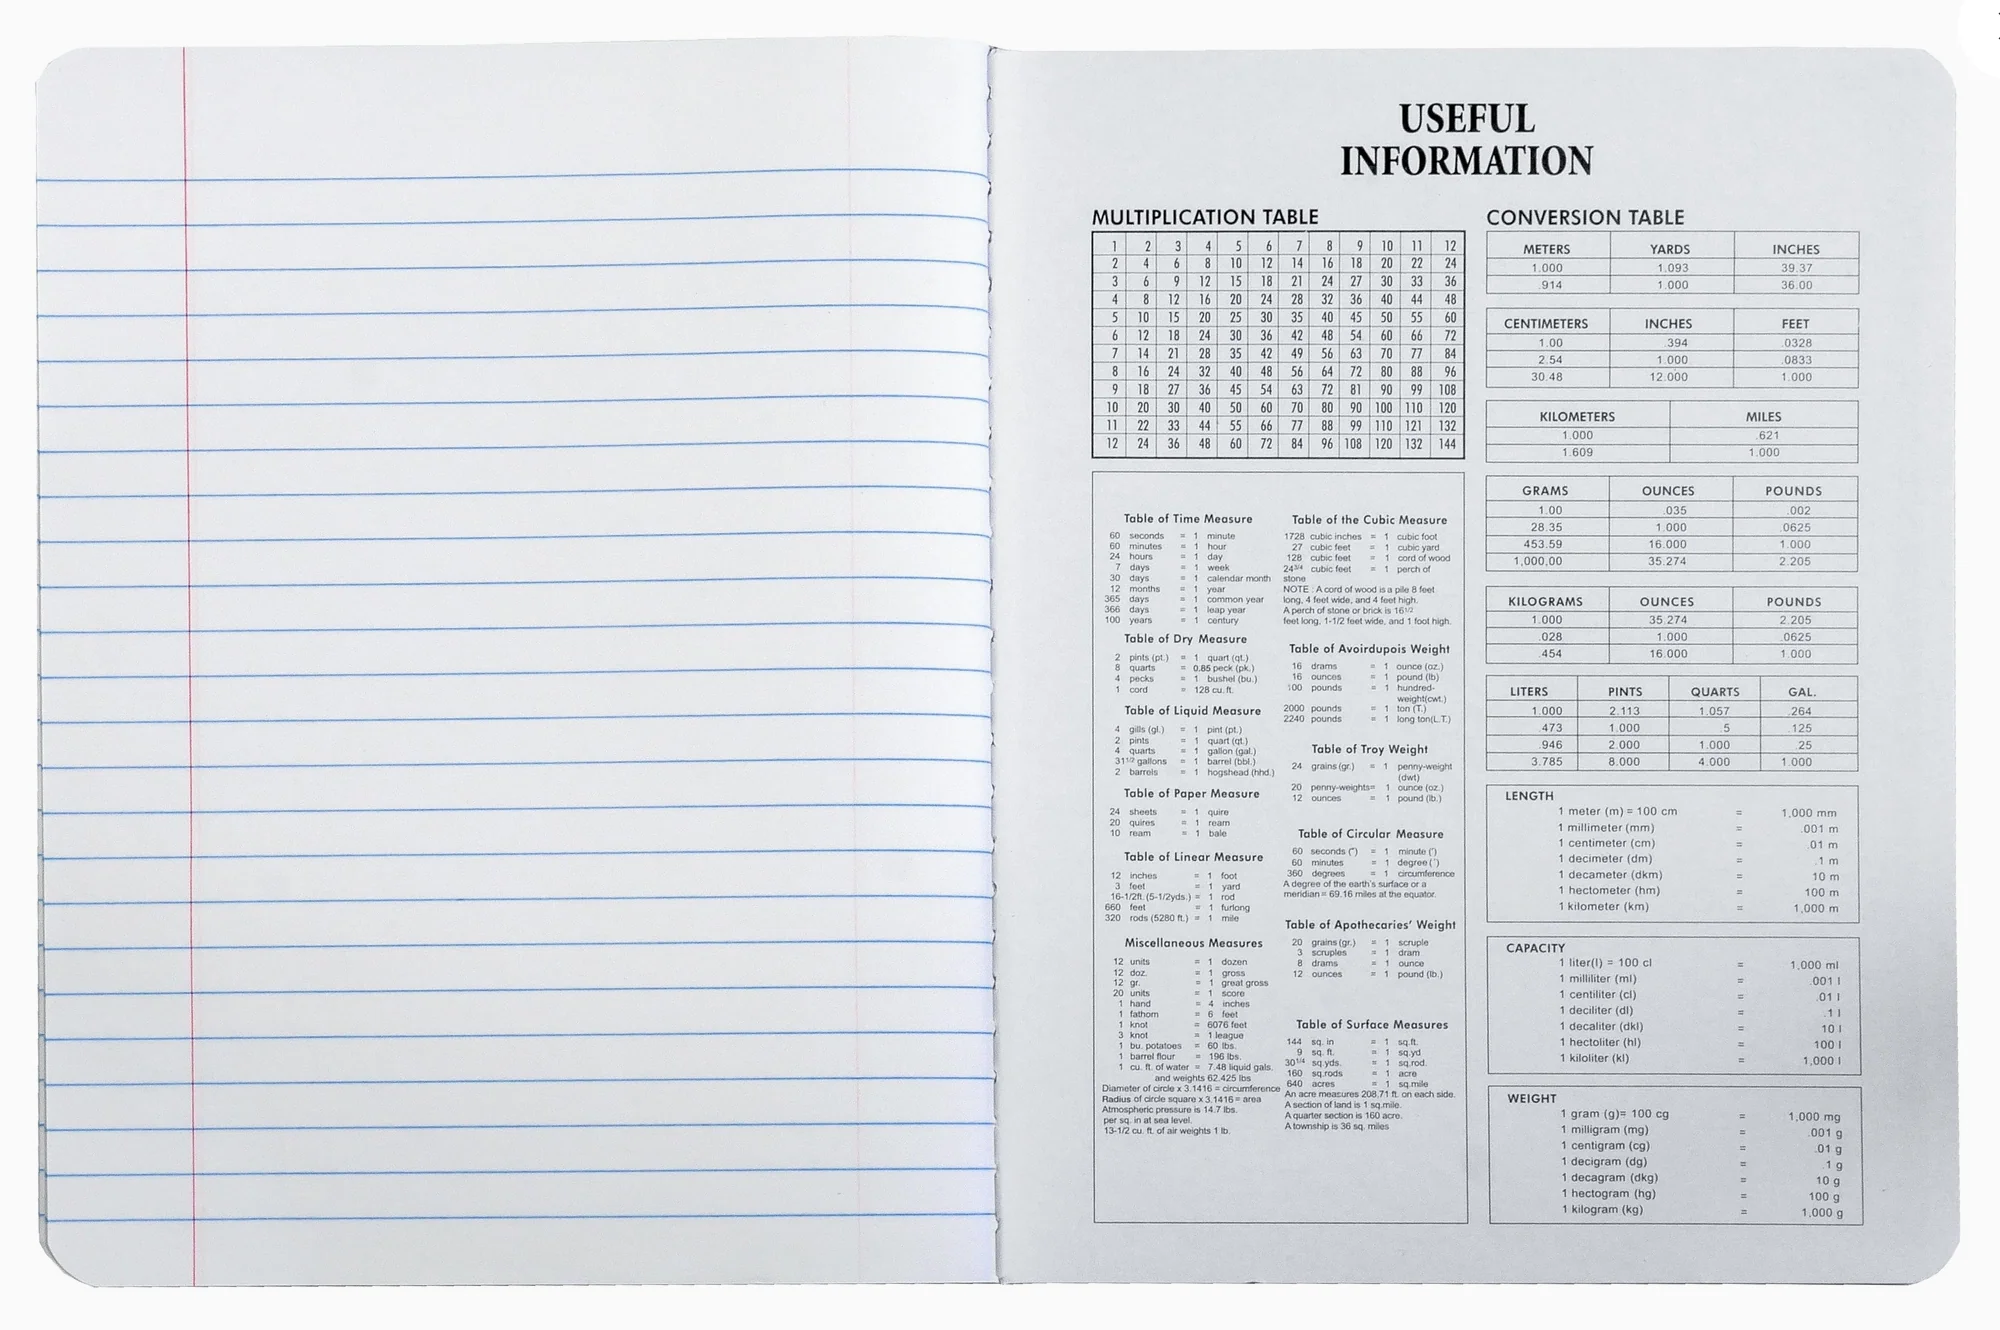 USEFUL
INFORMATION
MULTIPLICATION TABLE
1 2 3 4 5 6 7 8 9 10 11 12
2 4 6 8 10 12 14 16 18 20 22 24
3 6 9 12 15 18 21 24 27 30 33 36
4 8 12 16 20 24 28 32 36 40 44 48
5 10 15 20 25 30 35 40 45 50 55 60
6 12 18 24 30 36 42 48 54 60 66 72
7 14 21 28 35 42 49 56 63 70 77 84
8 16 24 32 40 48 56 64 72 80 88 96
9 18 27 36 45 54 63 72 81 90 99 108
10 20 30 40 50 60 70 80 90 100 110 120
11 22 33 44 55 66 77 88 99 110 121 132
12 24 36 48 60 72 84 96 108 120 132 144
Table of Time Measure
60 seconds = 1 minute
60 minutes = 1 hour
24 hours = 1 day
7 days = 1 week
30 days = 1 calendar month
12 months = 1 year
365 days = 1 common year
366 days = 1 leap year
100 years = 1 century
Table of Dry Measure
2 pints (pt.) = 1 quart (qt.)
8 quarts = 0.85 peck (pk.)
4 pecks = 1 bushel (bu.)
1 cord = 128 cu. ft.
Table of Liquid Measure
4 gills (gl.) = 1 pint (pt.)
2 pints = 1 quart (qt.)
4 quarts = 1 gallon (gal.)
31 1/2 gallons = 1 barrel (bbl.)
2 barrels = 1 hogshead (hhd.)
Table of Paper Measure
24 sheets = 1 quire
20 quires = 1 ream
10 ream = 1 bale
Table of Linear Measure
12 inches = 1 foot
3 feet = 1 yard
16-1/2ft. (5-1/2yds.) = 1 rod
660 feet = 1 furlong
320 rods (5280 ft.) = 1 mile
Miscellaneous Measures
12 units = 1 dozen
12 doz. = 1 gross
12 gr. = 1 great gross
20 units = 1 score
1 hand = 4 inches
1 fathom = 6 feet
1 knot = 6076 feet
3 knot = 1 league
1 bu. potatoes = 60 lbs.
1 barrel flour = 196 lbs.
1 cu. ft. of water = 7.48 liquid gals.
and weights 62.425 lbs
Diameter of circle x 3.1416 = circumference
Radius of circle square x 3.1416 = area
Atmospheric pressure is 14.7 lbs.
per sq. in at sea level.
13-1/2 cu. ft. of air weights 1 lb.
Table of the Cubic Measure
1728 cubic inches = 1 cubic foot
27 cubic feet = 1 cubic yard
128 cubic feet = 1 cord of wood
24 3/4 cubic feet = 1 perch of
stone
NOTE : A cord of wood is a pile 8 feet
long, 4 feet wide, and 4 feet high.
A perch of stone or brick is 16 1/2
feet long, 1-1/2 feet wide, and 1 foot high.
Table of Avoirdupois Weight
16 drams = 1 ounce (oz.)
16 ounces = 1 pound (lb)
100 pounds = 1 hundred-
weight(cwt.)
2000 pounds = 1 ton (T.)
2240 pounds = 1 long ton(L.T.)
Table of Troy Weight
24 grains (gr.) = 1 penny-weight
(dwt)
20 penny-weights= 1 ounce (oz.)
12 ounces = 1 pound (lb.)
Table of Circular Measure
60 seconds (") = 1 minute (')
60 minutes = 1 degree (°)
360 degrees = 1 circumference
A degree of the earth's surface or a
meridian = 69.16 miles at the equator.
Table of Apothecaries' Weight
20 grains (gr.) = 1 scruple
3 scruples = 1 dram
8 drams = 1 ounce
12 ounces = 1 pound (lb.)
Table of Surface Measures
144 sq. in = 1 sq.ft.
9 sq. ft. = 1 sq.yd
30 1/4 sq.yds. = 1 sq.rod.
160 sq.rods = 1 acre
640 acres = 1 sq.mile
An acre measures 208.71 ft. on each side.
A section of land is 1 sq.mile.
A quarter section is 160 acre.
A township is 36 sq. miles
CONVERSION TABLE
METERS YARDS INCHES
1.000 1.093 39.37
.914 1.000 36.00
CENTIMETERS INCHES FEET
1.00 .394 .0328
2.54 1.000 .0833
30.48 12.000 1.000
KILOMETERS MILES
1.000 .621
1.609 1.000
GRAMS OUNCES POUNDS
1.00 .035 .002
28.35 1.000 .0625
453.59 16.000 1.000
1,000,00 35.274 2.205
KILOGRAMS OUNCES POUNDS
1.000 35.274 2.205
.028 1.000 .0625
.454 16.000 1.000
LITERS PINTS QUARTS GAL.
1.000 2.113 1.057 .264
.473 1.000 .5 .125
.946 2.000 1.000 .25
3.785 8.000 4.000 1.000
LENGTH
1 meter (m) = 100 cm = 1,000 mm
1 millimeter (mm) = .001 m
1 centimeter (cm) = .01 m
1 decimeter (dm) = .1 m
1 decameter (dkm) = 10 m
1 hectometer (hm) = 100 m
1 kilometer (km) = 1,000 m
CAPACITY
1 liter(l) = 100 cl = 1,000 ml
1 milliliter (ml) = .001 l
1 centiliter (cl) = .01 l
1 deciliter (dl) = .1 l
1 decaliter (dkl) = 10 l
1 hectoliter (hl) = 100 l
1 kiloliter (kl) = 1,000 l
WEIGHT
1 gram (g)= 100 cg = 1,000 mg
1 milligram (mg) = .001 g
1 centigram (cg) = .01 g
1 decigram (dg) = .1 g
1 decagram (dkg) = 10 g
1 hectogram (hg) = 100 g
1 kilogram (kg) = 1,000 g